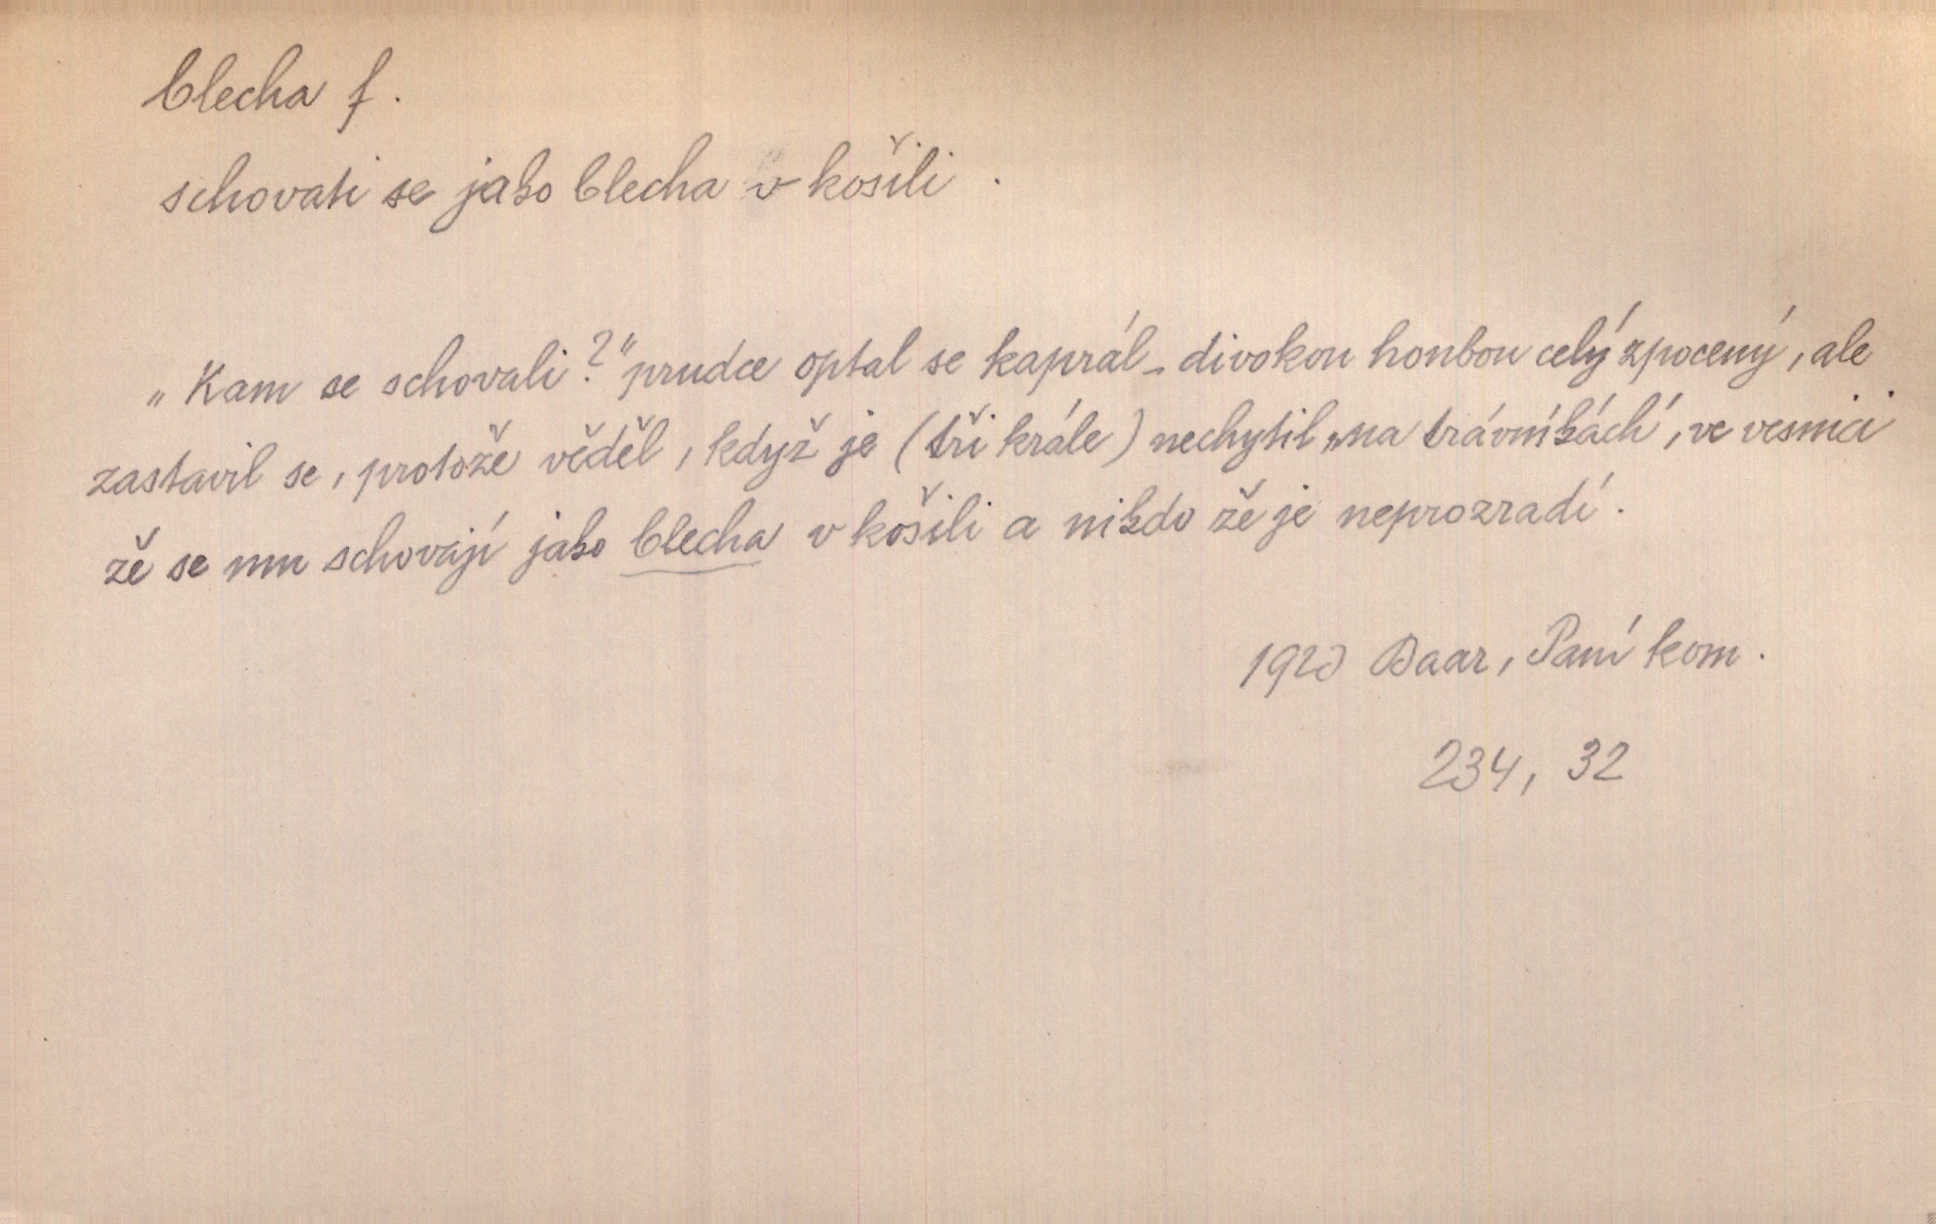 blecha f.
schovati se jako blecha v košili.
„Kam se schovali?" prudce optal se kaprál - divokou honbou celý zpocený, ale
zastavil se, protože věděl, když je (tři krále) nechytil „na trávníkách", ve vesnici
že se mu schovají jako blecha v košili a nikdo že je neprozradí.
1920 Baar, Paní kom.
234, 32